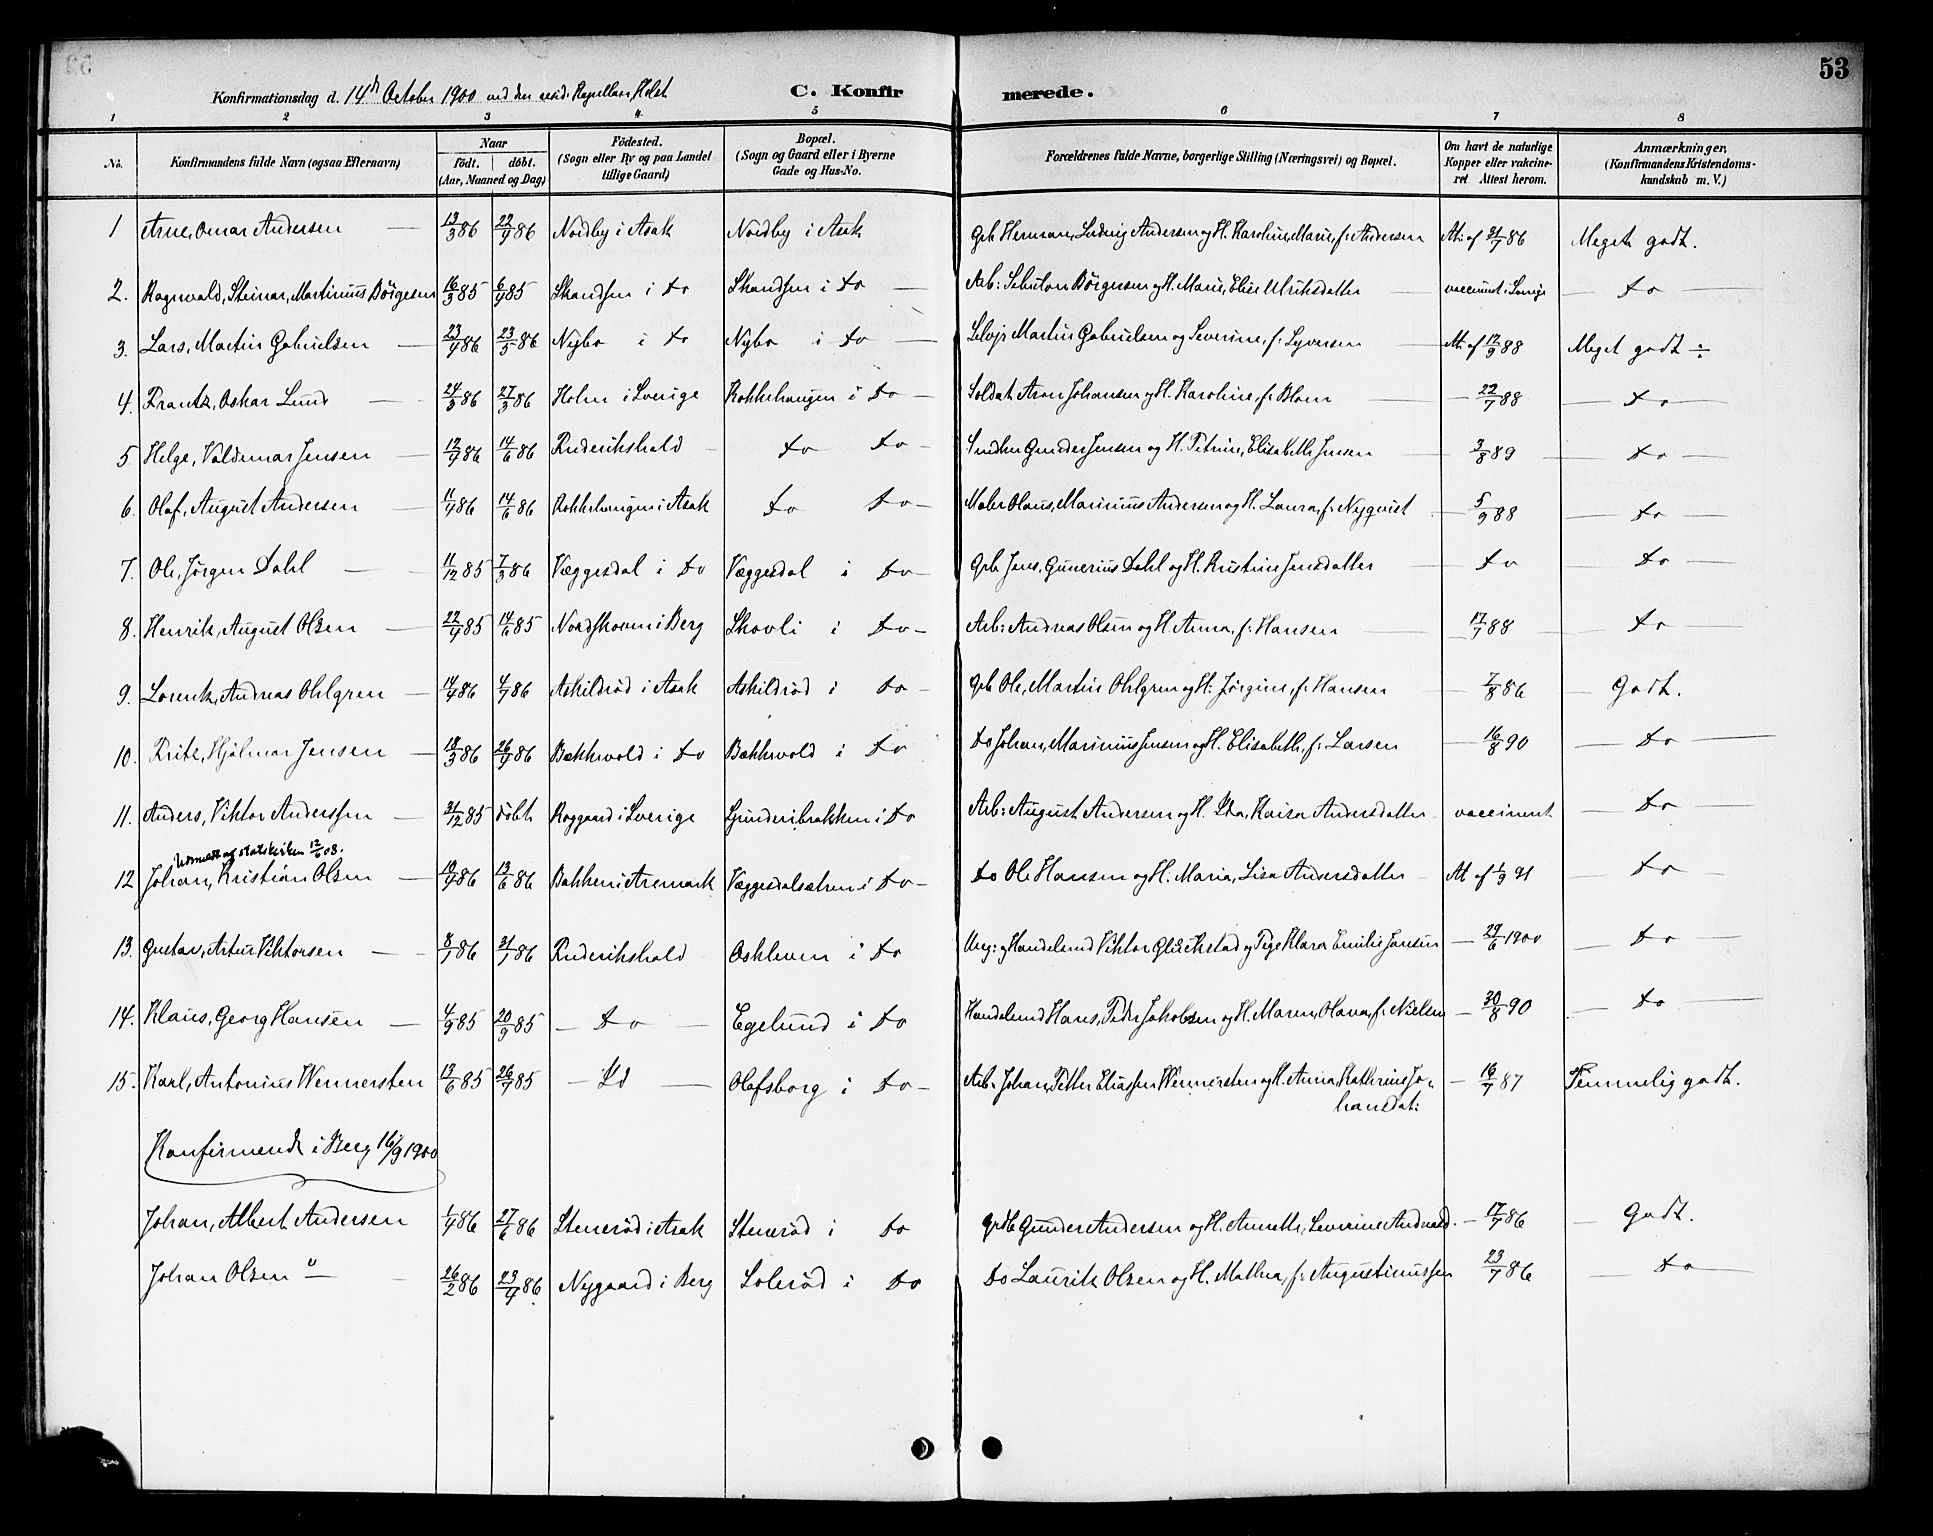 53
Konfirmationsdag d. 14de October 1900 ved den resid. Kapellan Holst C. Konfirmerede.
1 2 3 4 5 6 7 8
No. Konfirmandens fulde Navn (ogsaa Efternavn) Naar födt. döbt. (Aar, Maaned og Dag) Födested. (Sogn eller By og paa Landet tillige Gaard) Bopæl. (Sogn og Gaard eller i Byerne Gade og Hus-No. Forældrenes fulde Navne, borgerlige Stilling (Næringsvei) og Bopæl. Om havt de naturlige Kopper eller vakcineret Attest herom. Anmærkninger, (Konfirmandens Kristendomskundskab m. V.)
1 Arne, Omar Andersen 13/3 86 22/4 86 Nordby i Asak Nordby i Asak Grb Herman, Ludvig Andersen og H. Karoline, Marie, f: Andersen At: af 31/7 86 Meget godt.
2. Ragnvald, Steinar, Martinius Börgesen 16/3 85 6/4 85 Skandsen i do Skandsen i do Arb: Sebulon Börgersen og H. Marie, Elise Ulriksdatter vaccineret i Sverige do
3. Lars, Martin Gabrielsen 23/4 86 23/5 86 Nybo i do Nybo i do Selvejr Martin Gabrielsen og Severine, f: Syversen At. af 12/9 88 Meget godt ÷
4. Frantz, Oskar Lund 24/3 86 27/3 86 Holm i Sverige Kokkehaugen i do Soldat Aron Johansen og H. Karoline, f: Blom 22/7 88 do
5. Helge, Valdemar Jensen 12/4 86 14/6 86 Frederikshald do do Snedker Gunder Jensen og H. Petrine, Elisabeth Jensen 3/8 89 do
6. Olaf, August Andersen 11/4 86 14/6 86 Kokkehaugen i Asak do do Maler Olaus, Marinius Andersen og H. Laura, f: Nyqvist 5/9 88 do
7. Ole, Jørgen Dahl 11/12 85 7/3 86 Væggesdal i do Væggesdal i do Grb Jens, Gunerius Dahl og H. Kristine Jensdatter do do
8. Henrik, August Olsen 22/4 85 14/6 85 Nordskoven i Berg Skovli i do Arb: Andreas Olsen og H. Anna, f: Hansen 17/7 88 do
9. Lorentz, Andreas Ohlgren 14/4 86 4/7 86 Askildröd i Asak Askildröd i do Grb Ole, Martin Ohlgren og H. Jørgine, f: Hansen 7/8 86 Godt.
10. Fritz, Hjalmar Jensen 18/3 86 26/4 86 Bækkevold i do Bækkevold i do do Johan, Marinius Jensen og H. Elisabeth, f: Larsen 16/8 90 do
11. Anders, Viktor Anderssen 31/12 85 döbt Raggaard i Sverige i do Arb: August Andersen og H. Ida, Kaisa Andersdatter vaccineret do
Udmeldt af statskirken 12/6 08.
12 Johan, Kristian Olsen 10/4 86 13/6 86 Bakken i Aremark Væggesdalsætren i do do Ole Hansen og H. Maria, Lisa Andersdatter At af 1/9 91 do
13. Gustav, Artur Viktorsen 8/1 86 31/1 86 Frederikshald Oskleven i do Ung: og Handelsmd Viktor Glückstad og Pige Klara Emilie Jansen 29/6 1900 do
14. Klaus, Georg Hansen 4/9 85 20/9 85 do Egelund i do Handelsmd Hans, Peder Jakobsen og H. Maren, Olava, f: Nielsen 30/8 90 do
15. Karl, Antonius Wennersten 13/6 85 26/7 85 Id Olafsborg i do Arb: Johan, Petter Eliassen Wennersten og H. Anna, Katherine Johansdat: 16/7 87 Temmelig godt.
Konfirmerede i Berg 16/9 1900
Johan, Albert Andersen 1/4 86 27/6 86 Stenerød i Asak Stenerød i do Grdb Gunder Andersen og H. Annette, Severine Andreasd. 17/7 86 Godt.
Johan Olsen 26/2 86 23/4 86 Nygaard i Berg Solerød i do do Laurits Olsen og H. Mathea, f: Augustinussen 23/7 86 do